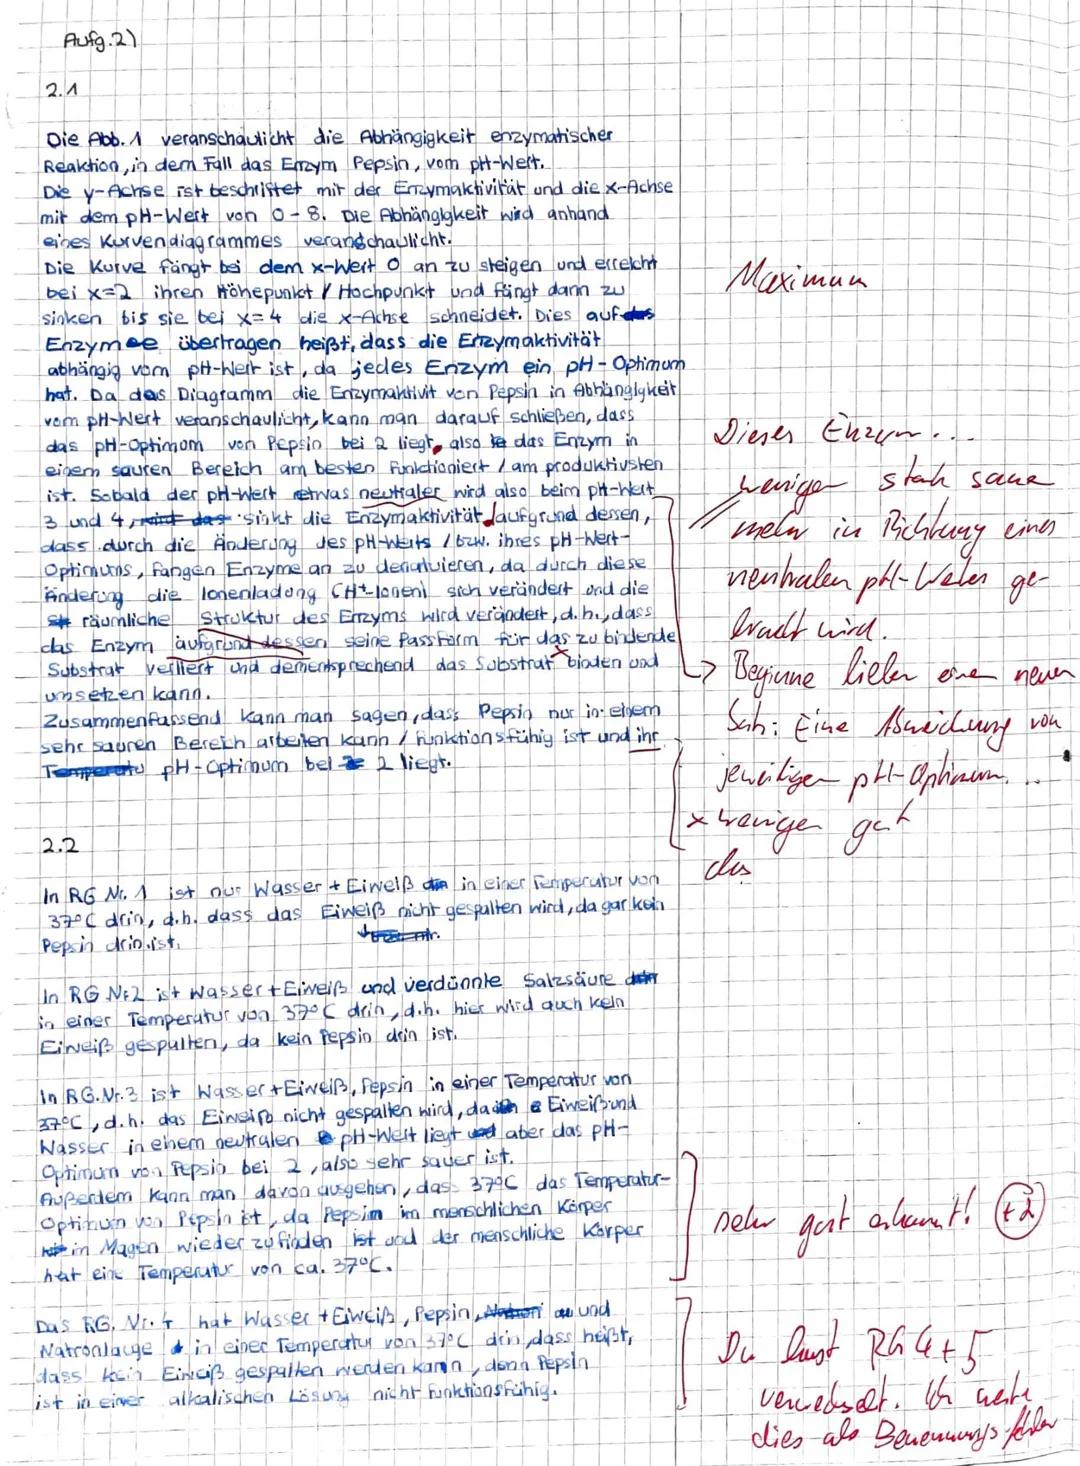 Aufg. 2)
2.1
Die Abb. 1 veranschaulicht die Abhängigkeit enzymatischer
Reaktion, in dem Fall das Enzym Pepsin, vom pH-Wert.
Die y-Achse ist beschriftet mit der Enzymaktivität und die x-Achse
mit dem pH-Wert von 0-8. Die Abhängigkeit wird anhand
eines Kurvendiagrammes veranschaulicht.
Die Kurve fängt bei dem x-Wert 0 an zu steigen und erreicht
bei x=2 ihren Höhepunkt / Hochpunkt und fängt dann zu
Maximum
sinken bis sie bei x=4 die x-Achse schneidet. Dies auf
Enzyme übertragen heißt, dass die Enzymaktivität
abhängig vom pH-Wert ist, da jedes Enzym ein pH-Optimum
hat. Da das Diagramm die Enzymaktivit von Pepsin in Abhängigkeit
vom pH-Wert veranschaulicht, kann man darauf schließen, dass
das pH-Optimum von Pepsin bei 2 liegt, also das Enzym in
Dieses Enzym...
einem sauren Bereich am besten funktioniert / am produktivsten
ist. Sobald der pH-Wert etwas neutraler wird also beim pH-Wert
weniger stark sauer
3 und 4, sinkt die Enzymaktivität aufgrund dessen,
mehr in Richtung eines
dass durch die Änderung des pH-Werts / bzw. ihres pH-Wert-
Optimums, fangen Enzyme an zu denaturieren, da durch diese
neutralen pH-Wertes ge-
Änderung die Ionenladung (H+-Ionen) sich verändert und die
räumliche Struktur des Enzyms wird verändert, d.h., dass
bracht wird.
das Enzym aufgrund dessen seine Passform für das zu bindende
Substrat verliert und dementsprechend das Substrat binden und
→ Beginne lieber einen neuen
umsetzen kann.
Satz: Eine Abweichung vom
Zusammenfassend kann man sagen, dass Pepsin nur in einem
sehr sauren Bereich arbeiten kann / funktionsfähig ist und ihr
jeweiligen pH-Optimum...
pH-Optimum bei 2 liegt.
x weniger gut
das
2.2
In RG Nr. 1 ist nur Wasser + Eiweiß in einer Temperatur von
37°C drin, d.h. dass das Eiweiß nicht gespalten wird, da gar kein
Pepsin drin ist.
In RG Nr. 2 ist Wasser + Eiweiß und verdünnte Salzsäure
in einer Temperatur von 37°C drin, d.h. hier wird auch kein
Eiweiß gespalten, da kein Pepsin drin ist.
In RG. Nr. 3 ist Wasser + Eiweiß, Pepsin in einer Temperatur von
37°C, d.h. das Eiweiß nicht gespalten wird, da Eiweiß und
Wasser in einem neutralen pH-Wert liegt aber das pH-
Optimum von Pepsin bei 2, also sehr sauer ist.
Außerdem kann man davon ausgehen, dass 37°C das Temperatur-
Optimum von Pepsin ist, da Pepsin im menschlichen Körper
sehr gut erkannt! (+2)
in Magen wieder zufinden ist und der menschliche Körper
hat eine Temperatur von ca. 37°C.
Das RG. Nr. 4 hat Wasser + Eiweiß, Pepsin, und
Natronlauge in einer Temperatur von 37°C drin, dass heißt,
Du hast RG 4+5
dass kein Eiweiß gespalten werden kann, denn Pepsin
ist in einer alkalischen Lösung nicht funktionsfähig.
verwechselt. Ich werte
dies als Benennungsfehler